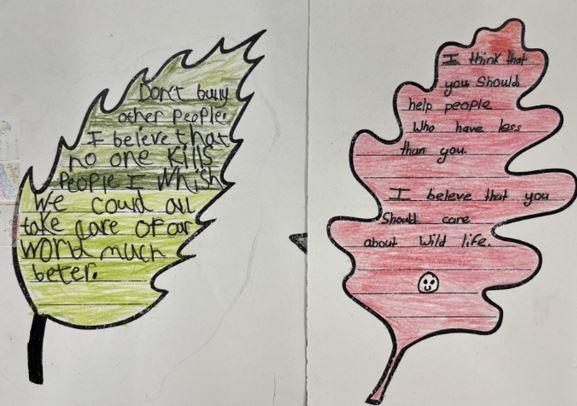 Don't buuy
other People.
I beleve that
no one kills
People I Whish
We coud all
take care of our
World much
beter.
I think that
you Should
help people
Who have less
than you.
I beleve that you
Should care
about Wild life.